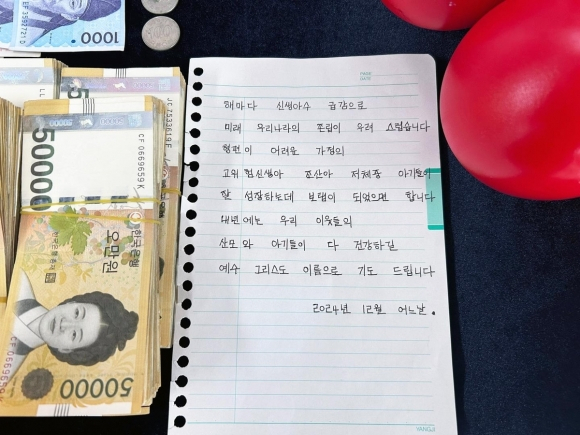 1000
50000
CF 0669659 K
한국은행
오만원
50000
PAGE
DATE
해마다 신생아수 급감으로
미래 우리나라의 존립이 우려 스럽습니다
형편이 어려운 가정의
고위험신생아 조산아 저체중 아기들이
잘 성장하는데 보탬이 되었으면 합니다
내년에는 우리 이웃들의
산모와 아기들이 다 건강하길
예수 그리스도 이름으로 기도 드립니다
2024년 12월 어느날.